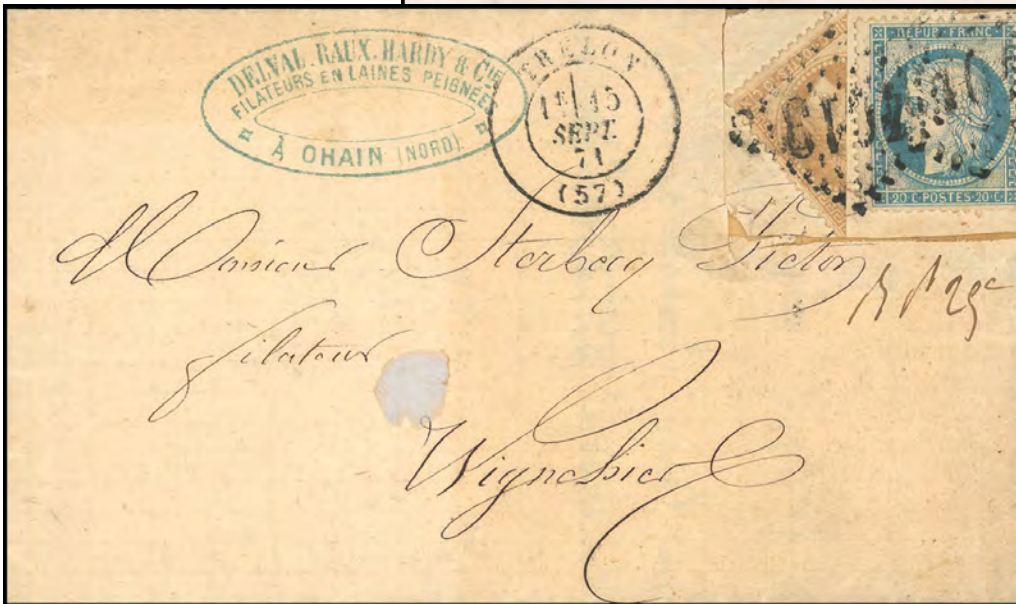 DELVAL. RAUX. HARDY & Cie
FILATEURS EN LAINES PEIGNÉES
À OHAIN (NORD).
TRELON
1E 15
SEPT.
71
(57)
REPUB. FRANC.
20 C. POSTES. 20 C.
Monsieur Sterbecq Victor
filateur
Wignehies